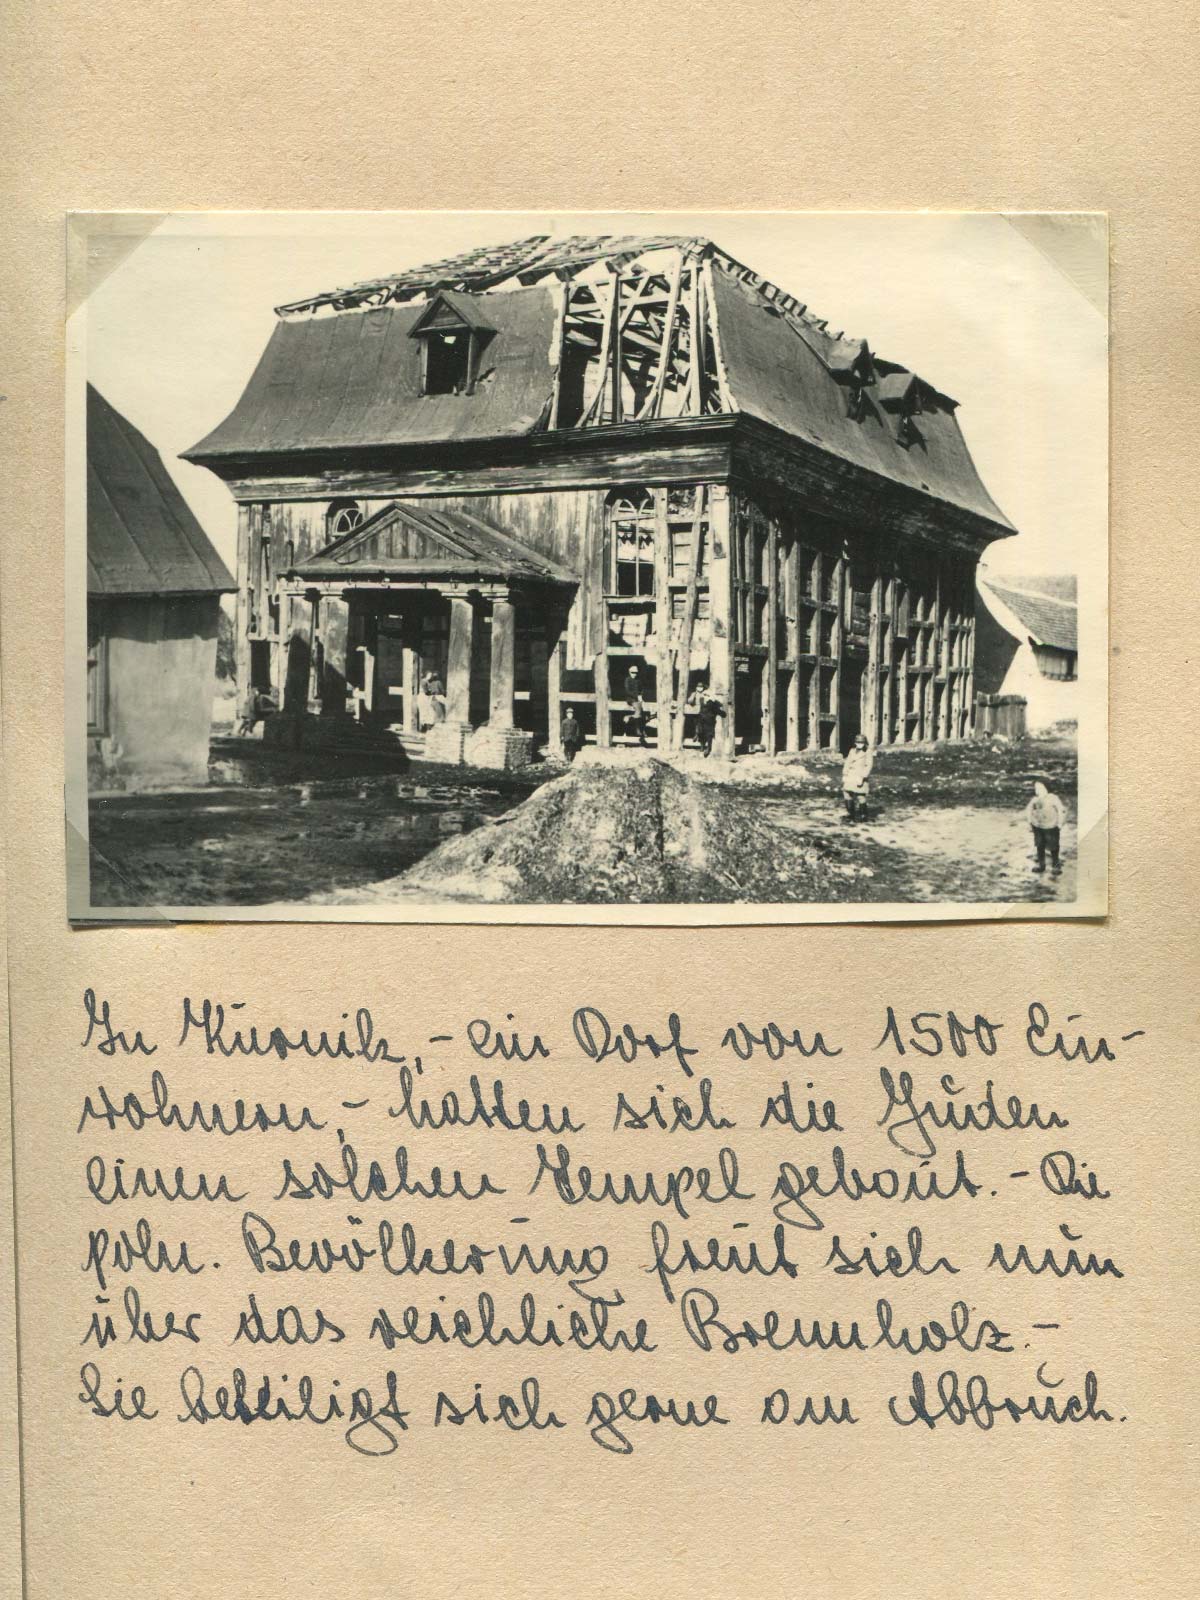 In Kurnik, - ein Dorf von 1500 Ein-
wohnern, - hatten sich die Juden
einen solchen Tempel gebaut. - Die
poln. Bevölkerung freut sich nun
über das reichliche Brennholz. -
Sie beteiligt sich gerne am Abbruch.